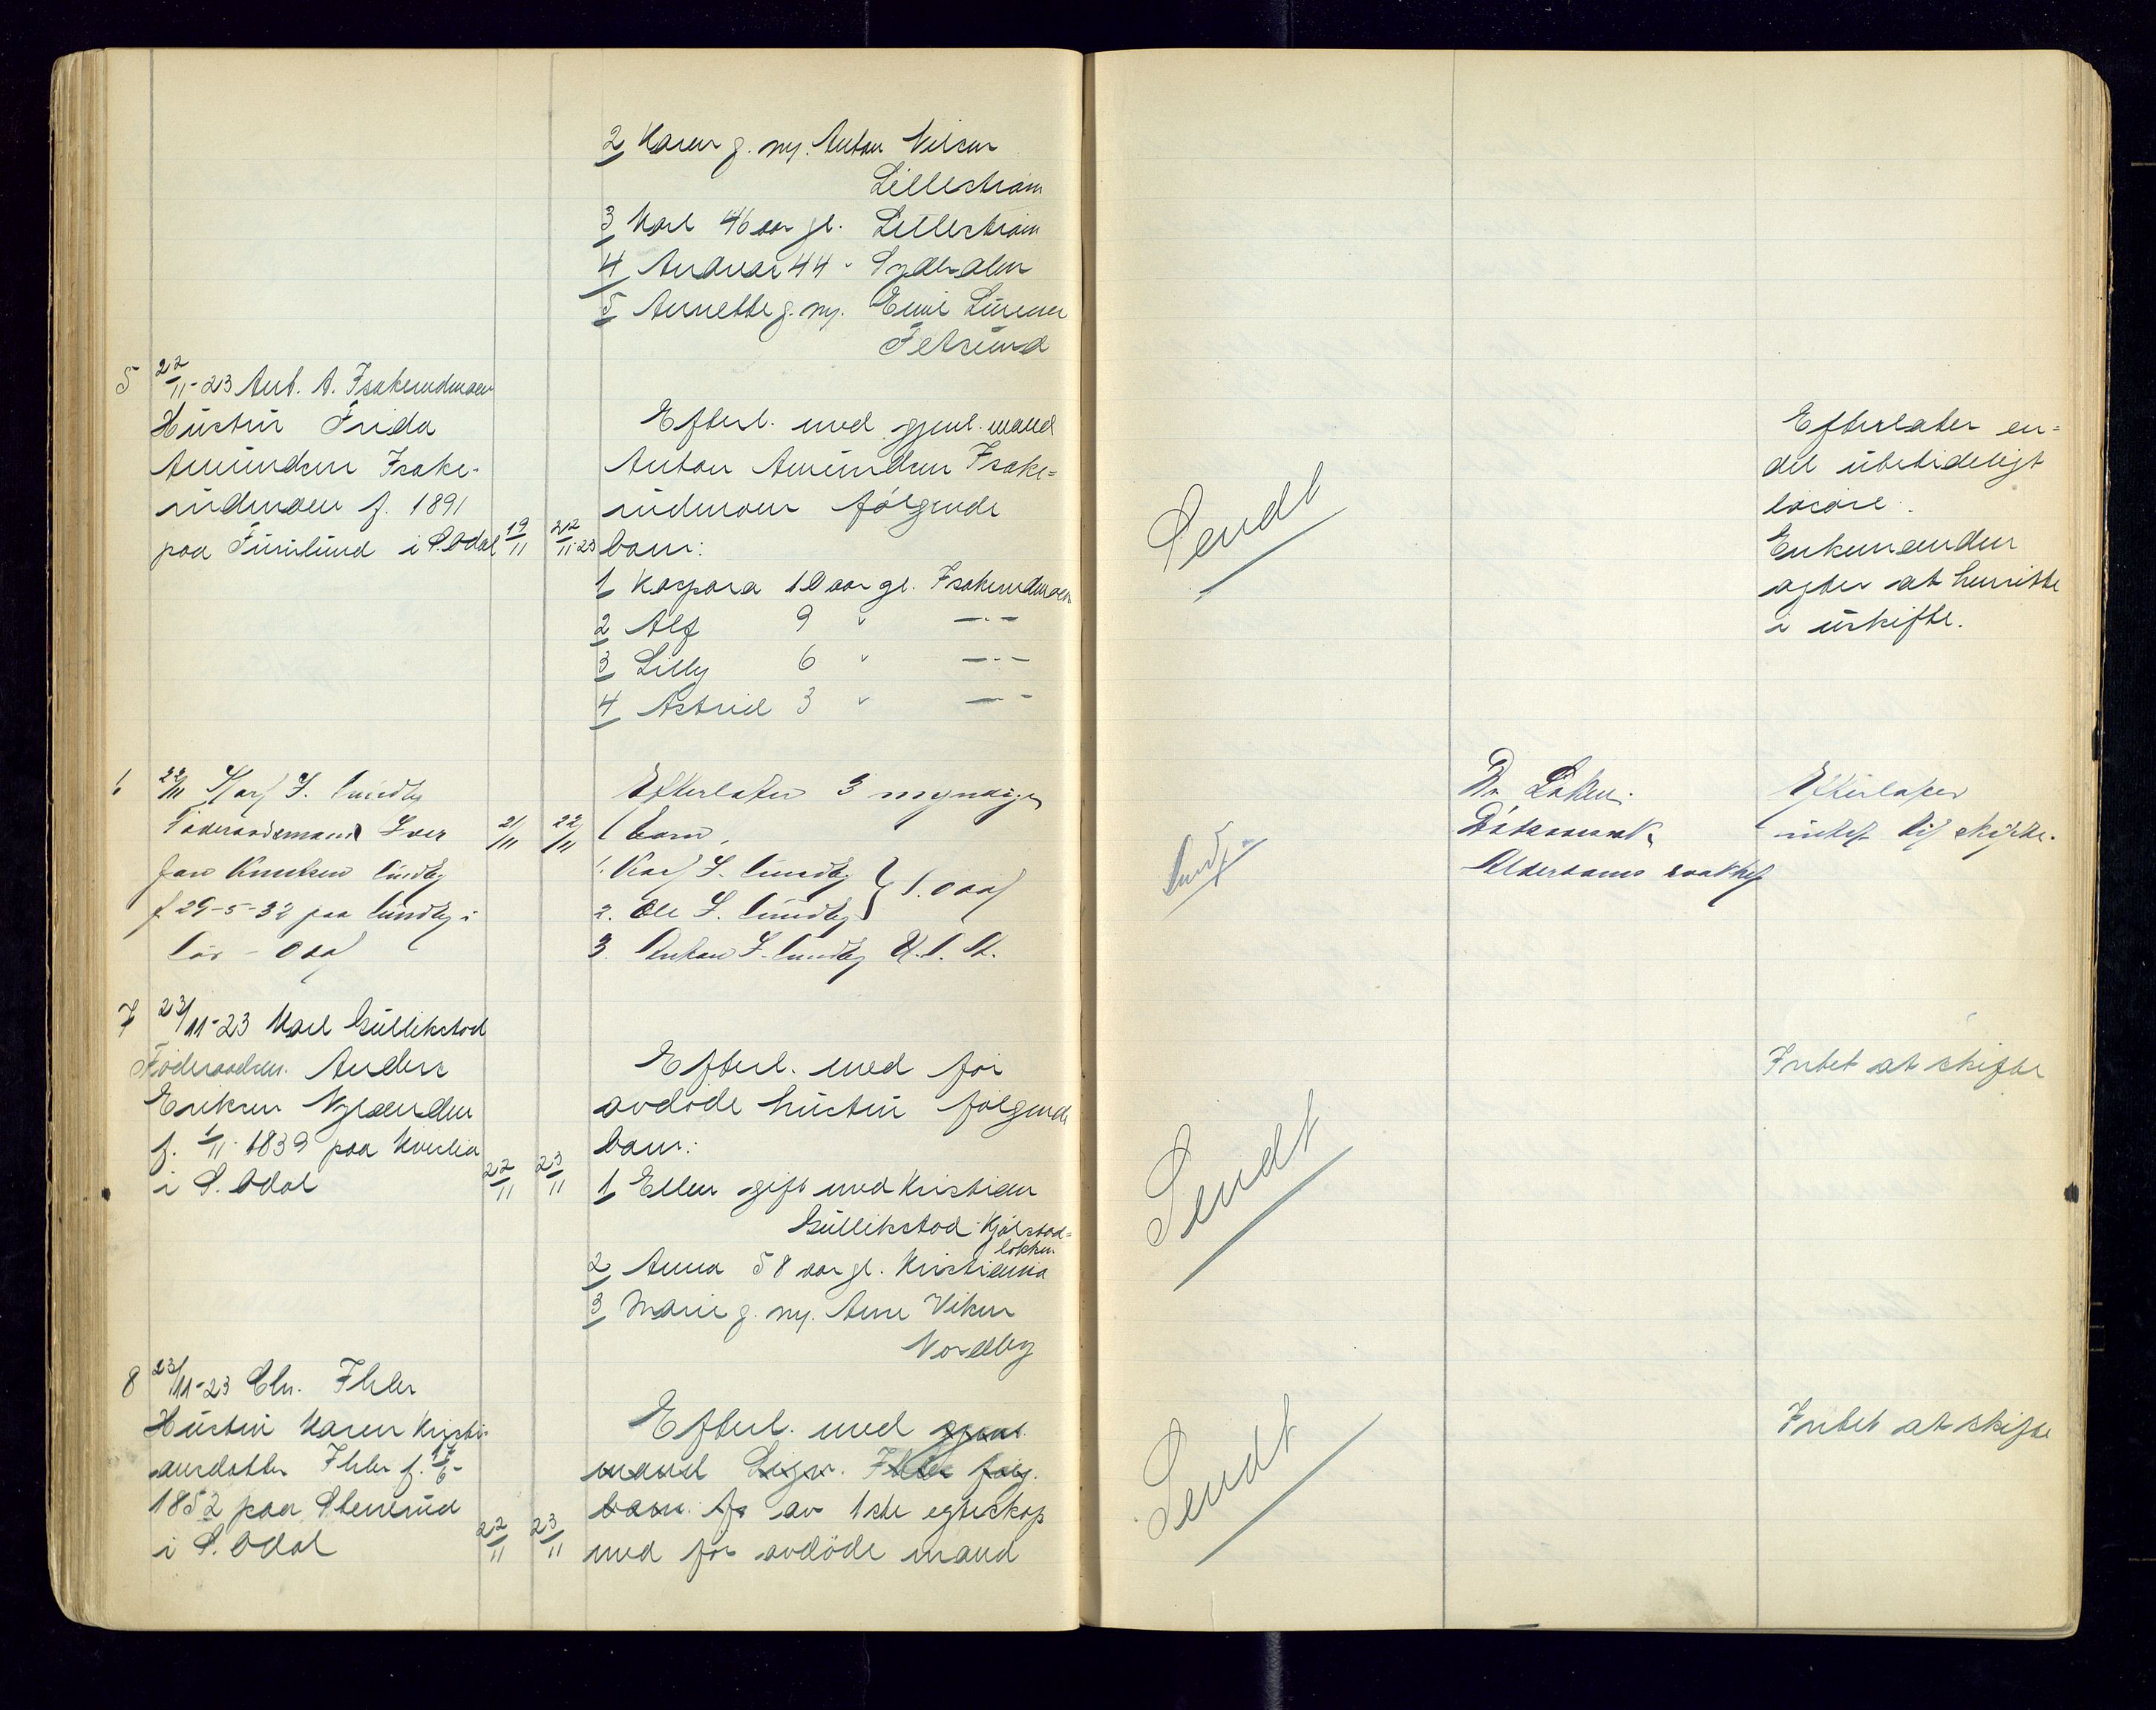 2 Karen g. m. Anton Nilsen
Lillestrøm
3 Karl 46 aar gl. Lillestrøm
4 Andreas 44 " Sydalen
5 Annette g. m. Emil Larsen
Fetsund
5 22/11-23 Ant. A. Isakerudmoen
Hustru Frida
Amundsen Isake-
rudmoen f. 1891
paa Furulund i S. Odal 19/11 22/11-23
Efterl. med gjenl. mand
Anton Amundsen Isake=
rudmoen følgende
barn:
1 Kaspara 10 aar gl. Isakerudmoen
2 Alf 9 " —"—
3 Lilly 6 " —"—
4 Astrid 3 " —"—
Sendt
Efterlater en=
del ubetideligt
løsøre.
Enkemanden
agter at hensitte
i uskifte.
22/11 Karl I. Lundby
Føderaadsmand Iver
Knutsen Lundby
f 29-5-32 paa Lundby i
Sør-Odal 21/11 22/11
Efterlater 3 myndige
barn,
1. Karl I. Lundby
2. Ole I. Lundby } S. Odal
3. Anton I. Lundby U. S. A.
Sendt
Dr Løken.
Dødsaarsak
Alderdomssvakhet
Efterlater
intet til skifte.
7 23/11-23 Karl Gullikstad
Føderaadsm. Anders
Eriksen Nylænden
f. 1/11 1839 paa Kverlia
i S. Odal 22/11 23/11
Efterl. med før
avdøde hustru følgende
barn:
1 Ellen gift med Kristian
Gullikstad Kjølstad=
løkken
2 Anna 58 aar gl. Kristiania
3 Marie g. m. Arne Viken
Nordby
Sendt
Intet at skifte
8 23/11-23 Chr. Ihler
Hustru Karen Kristi-
ansdatter Ihler f. 17/6-
1852 paa Stenerud
i S. Odal 22/11 23/11
Efterl. med gjenl.
mand Sigv. Ihler følg.
barn. fr av 1ste egteskap
med før avdøde mand
Sendt
Intet at skifte